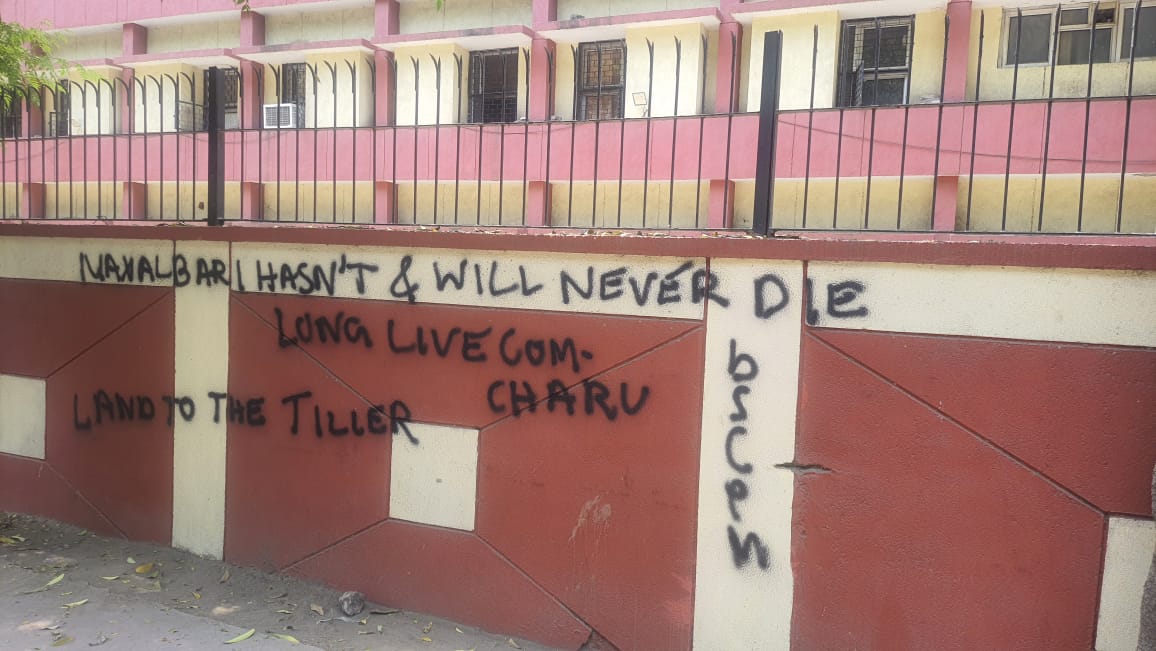 NAXALBARI HASN'T & WILL NEVER DIE
LONG LIVE COM.
CHARU
LAND TO THE TILLER
bsCeM